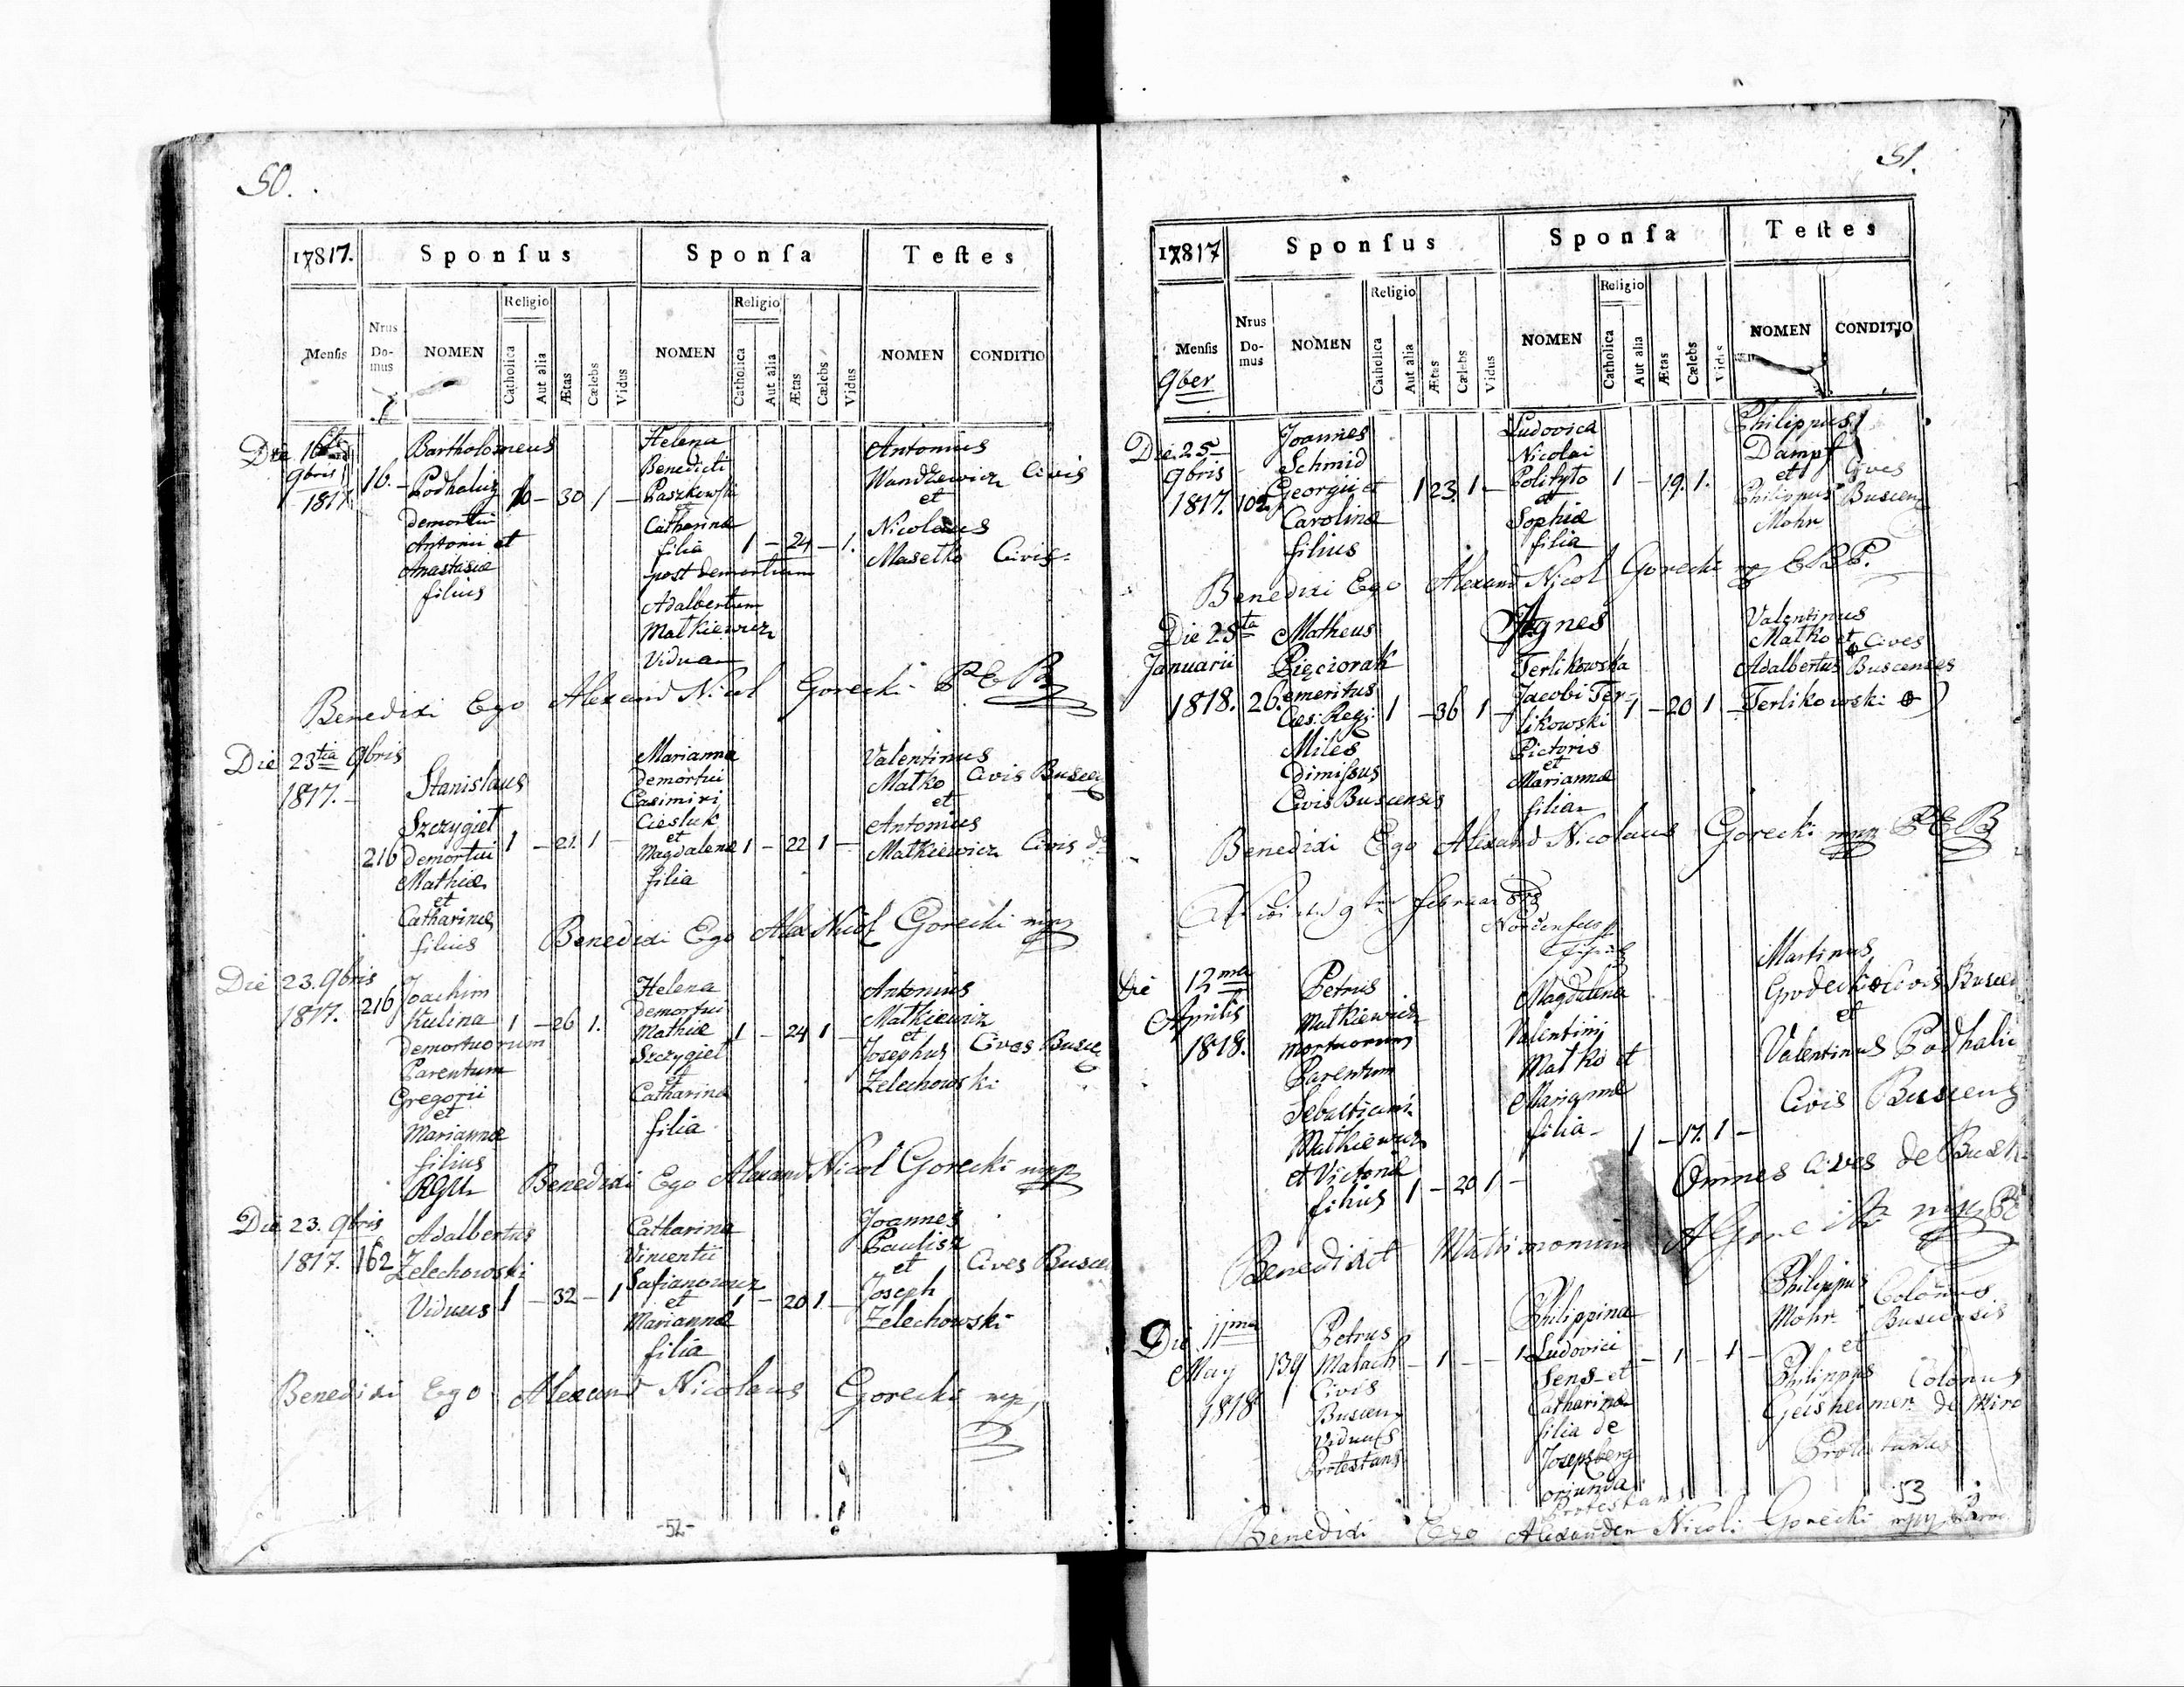 50.
17817.
Sponsus
Sponsa
Testes
Mensis
Nrus Do-mus
NOMEN
Religio
Catholica
Aut alia
Ætas
Cælebs
Vidus
NOMEN
Religio
Catholica
Aut alia
Ætas
Cælebs
Vidus
NOMEN
CONDITIO
Die 16
9bris
1817
16.
Bartholomeus
Podhaliz
demortui
Antonii et
Anastasiæ
filius
30 1 –
Helena
Benedicti
Paszkowski
et
Catharinæ
filia
post demortuum
Adalbertum
Matkiewicz
Viduam
1 – 24 – 1.
Antonius
Wandzewicz Civis
et
Nicolaus
Masetko Civis
Benedixi Ego Alexand Nicol Gorecki
Die 23tia 9bris
1817.
216
Stanislaus
Szczygiet
demortui
Mathiæ
et
Catharinæ
filius
1 – 21. 1 –
Marianna
demortui
Casimiri
Ciesluk
et
Magdalenæ
filia
1 – 22 1 –
Valentinus
Matko Civis Buscen
et
Antonius
Matkiewicz Civis
Benedixi Ego Alex Nicol Gorecki mp
Die 23. 9bris
1817.
216
Joachim
Kulina
demortuorum
Parentum
Gregorii
et
Mariannæ
filius
1 – 26 1.
Helena
demortui
Mathiæ
Szczygiet
et
Catharinæ
filia
1 – 24 1 –
Antonius
Matkiewicz
et
Josephus Cives Busce
Zelechowski
Benedixi Ego Alexand Nicol Gorecki mp
Die 23. 9bris
1817.
162
Adalbertus
Zelechowski
Viduus
1 – 32 – 1
Catharina
Vincentii
Safianowicz
et
Mariannæ
filia
1 – 20 1 –
Joannes
Paulisz
et Cives Busce
Joseph
Zelechowski
Benedixi Ego Alexand Nicolaus Gorecki mp
-52-
51.
17817
Sponsus
Sponsa
Testes
Mensis
9ber
Nrus Do-mus
NOMEN
Religio
Catholica
Aut alia
Ætas
Cælebs
Vidus
NOMEN
Religio
Catholica
Aut alia
Ætas
Cælebs
Vidus
NOMEN
CONDITIO
Die 25
9bris
1817.
102
Joannes
Schmid
Georgii et
Carolinæ
filius
1 23 1 –
Ludovica
Nicolai
Polityto
et
Sophiæ
filia
1 – 19. 1.
Philippus
Dampf
et Cives
Philippus Buscen
Mohr
Benedixi Ego Alexand Nicol Gorecki
Die 25ta
Januarii
1818.
26.
Matheus
Pięciorak
emeritus
Cæs: Reg:
Miles
dimissus
Civis Buscensis
1 – 36 1 –
Agnes
Terlikowska
Jacobi Ter-
likowski
Pictoris
et
Mariannæ
filia
1 – 20 1 –
Valentinus
Matko et Cives
Adalbertus Buscenses
Terlikowski
Benedixi Ego Alexand Nicolaus Gorecki
Die 12ma
Aprilis
1818.
Petrus
Matkiewicz
mortuorum
Parentum
Sebastiani
Matkiewicz
et Victoriæ
filius
1 – 20 1 –
Magdalena
Valentini
Matko et
Mariannæ
filia
1 – 17. 1 –
Martinus
Grodecki Civis Buscen
et
Valentinus Podhali
Civis Buscens
Omnes Cives de Busk
Die 11ma
May
1818
139
Petrus
Malach
Civis
Buscen
Viduus
Protestans
– 1 – – 1
Philippina
Ludovici
Sens et
Catharinæ
filia de
Josepsberg
oriunda
Protestans
– 1 – 1 –
Philippus Colonus
Mohr Buscensis
et
Philippus Colonus
Geisheimer de
53
Benedixi Ego Alexander Nicol: Gorecki